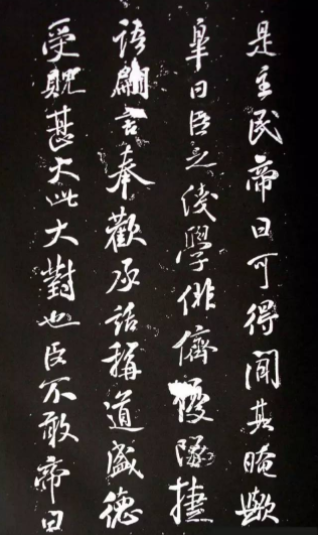 是主民帝曰可得聞其晻歟
皋曰臣之淺學俳儕優隊捷
語言奉歡承話稱道盛德
受貺甚大此大對也臣不敢帝曰